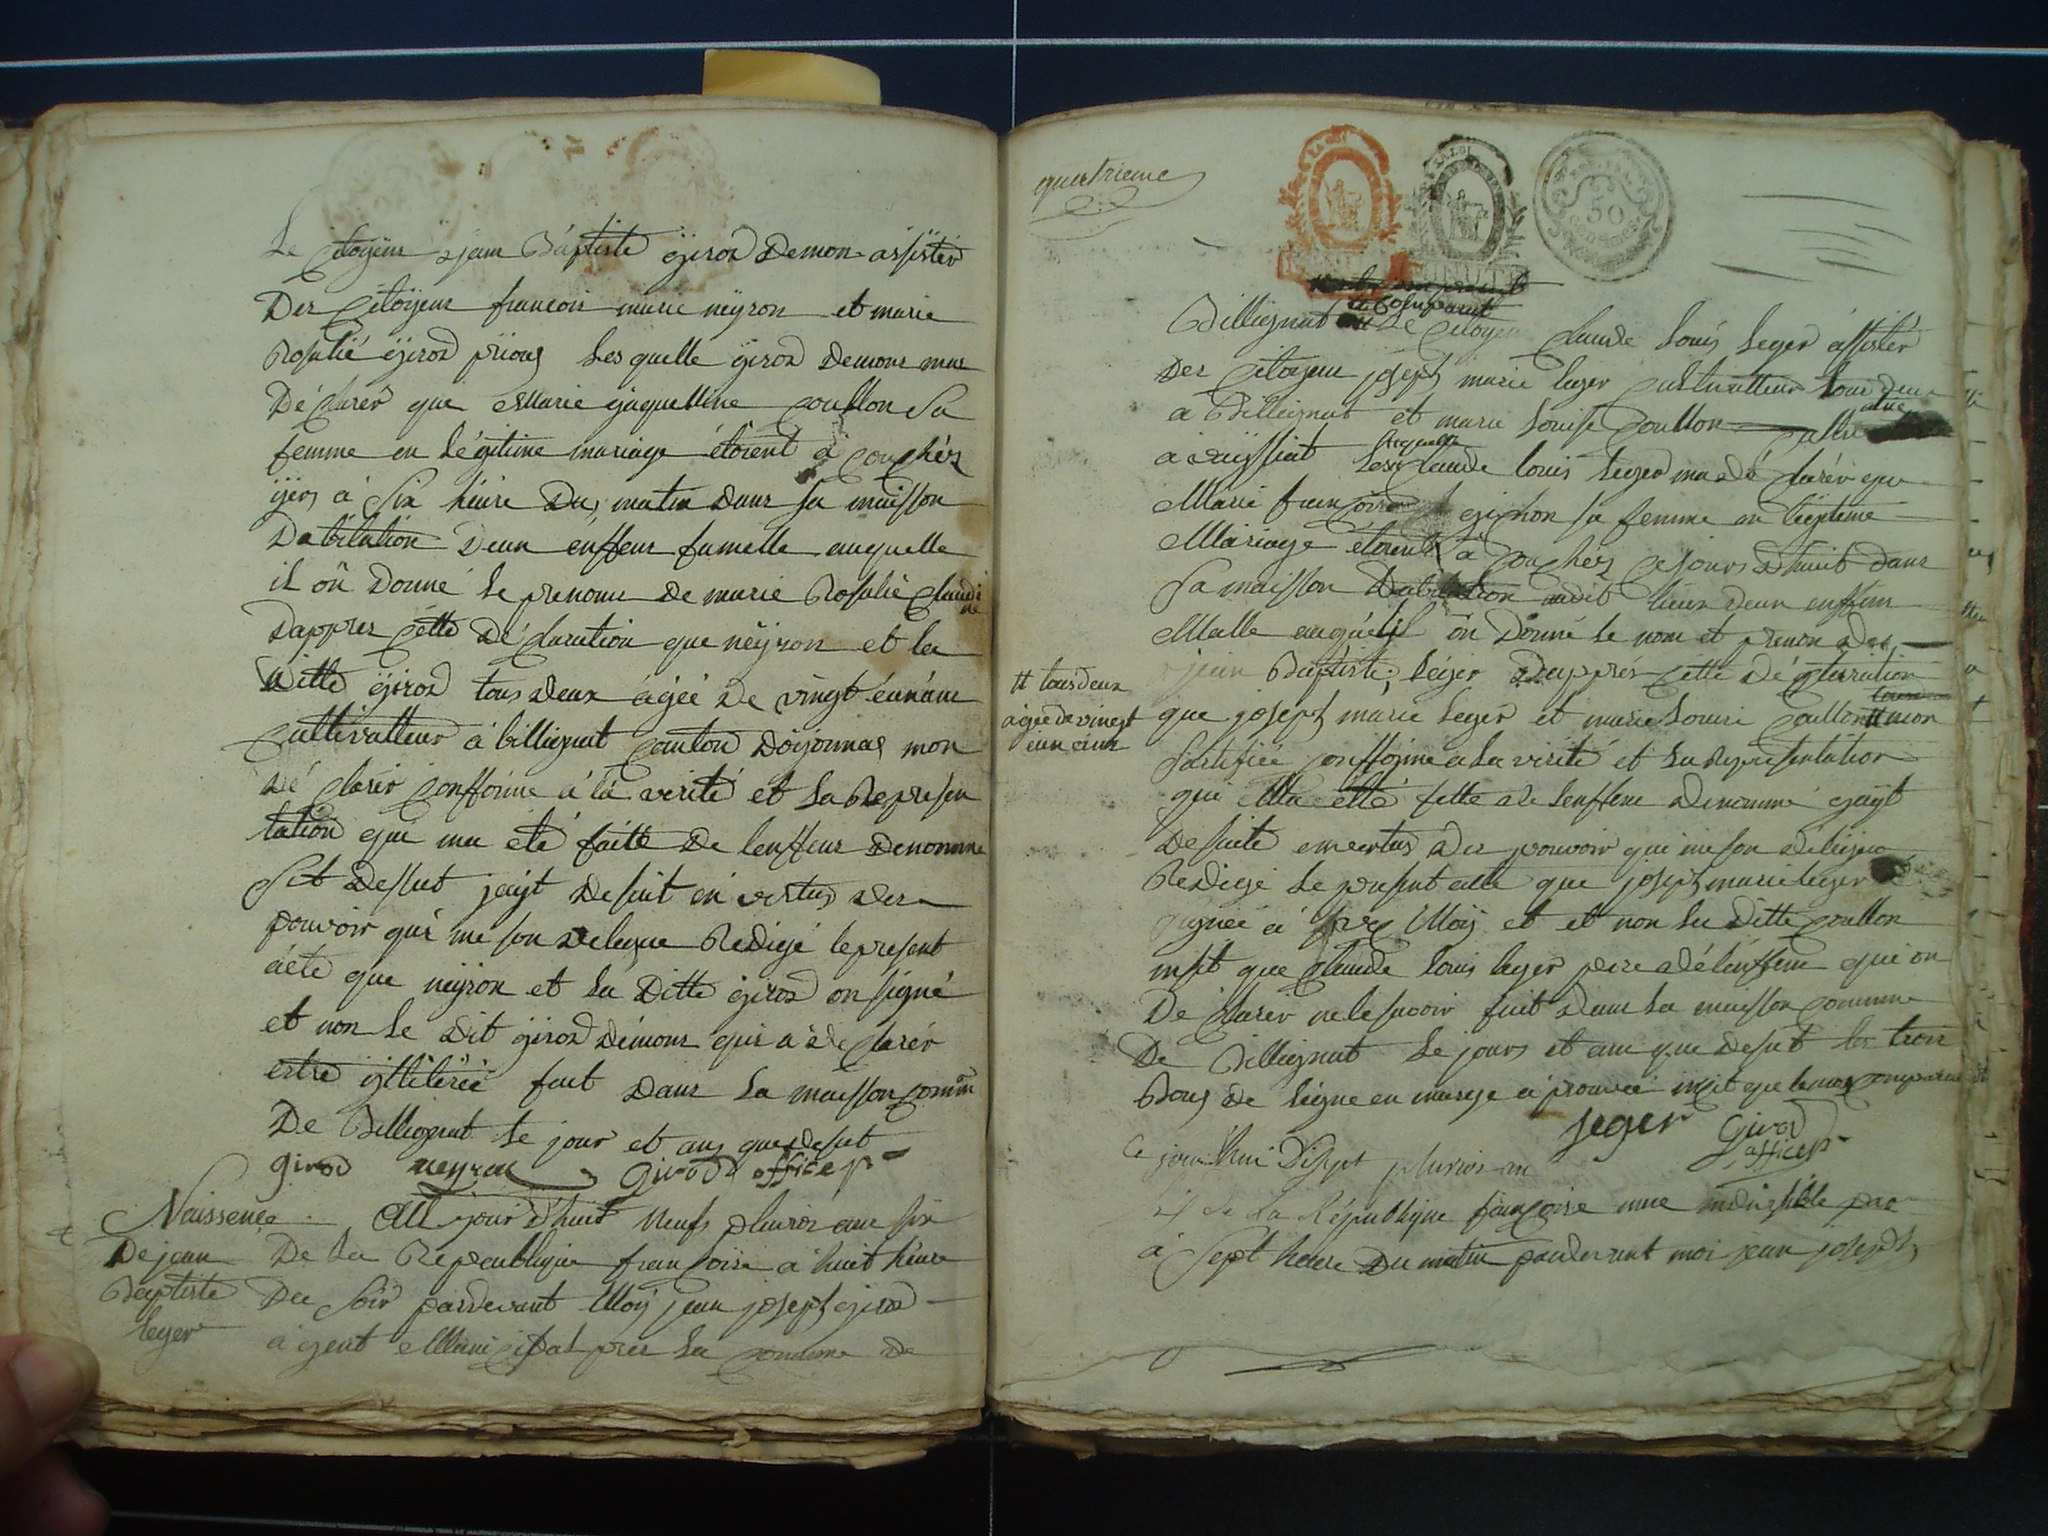 Le Citoyens jean Baptiste girod Demon assister
Des Citoyens francois marie neyron et marie
Rosalié girod priong Lesquelle girod Demons mas
Déclarér que Marie jaquelline coullon Sa
femme en Légitime mariage étoient à couchér
yers à Six heure Du matin dans Sa maisson
Dabitation Deun enffens fumelle auquelle
il on Donné le prenoms De marie Rosalié Claudi
ne
Dappres Cette Déclaration que neyron et la
Ditte girod tous deux agée De vingt éun ans
Cultivatteur à billiognat canton Doijonnas mon
Déclarér Confforme à la verité et La Represen
tation qui ma eté faitte De lenffens Denommé
Sit Dessut jayt De Suit en vertus Des
pouvoir qui me son deleguee Redigé le present
acte que neyron et La Ditte girod on Signé
et non le dit girod Démons qui a déclarér
estre illitérée fait Dans La maisson comm
De Billiognat Le jour et ans que desut
girod neyron Girod officep
Naissençe
De jean
Baptiste
leger
Au jour d'huit Neufs pluvios ans Six
De La Republique francoise à huit heure
Du Soir pardevant Moy jean joseph girod
agent Municipal pres La commune de
quatrieme
LA LOI
LA LOI
50
a Comparut
Billiognat Le Citoyen Claude Louis Leger assistér
Des Citoyens joseph marie leger Cultivatteur tous deux
à Billiognat et marie Louise Coullon cultiv
atrice
a Lesquelle Claude louis Leger ma déclarér que
Marie francoise sa femme en légitime
Mariage étoient a couchér cejours dhuit dans
Sa maisson Dabitation audit lieux deun enffens
Malle auquel il on Donné le nom et prenon des
jean Baptiste Léger Dapprés Cette Déclarration
que joseph marie Leger et marie Louise coullon # mon
# tous deux
agée de vingt
éun ans
Sertifiée confforme a la verité et La Representation
qui Ma etté fette de lenffens denommé jayt
de Suite en vertus des pouvoir qui me son déléguee
Redigé le present acte que joseph marie leger
Signée à avec Moy et et non La Ditte coullon
insit que Claude louis leger pere de lenffens qui on
Déclarér ne le savoir fait dans La maisson commune
De Billiognat le jours et ans que desut les trois
Bous de Ligne en marge aprouvée insit que le mos comparut
Leger Girod
officep
Ce jourdhui Dissept pluvios an
six de la République francoise une indivisible
à Sept heure Du matin pardevant moi jean joseph